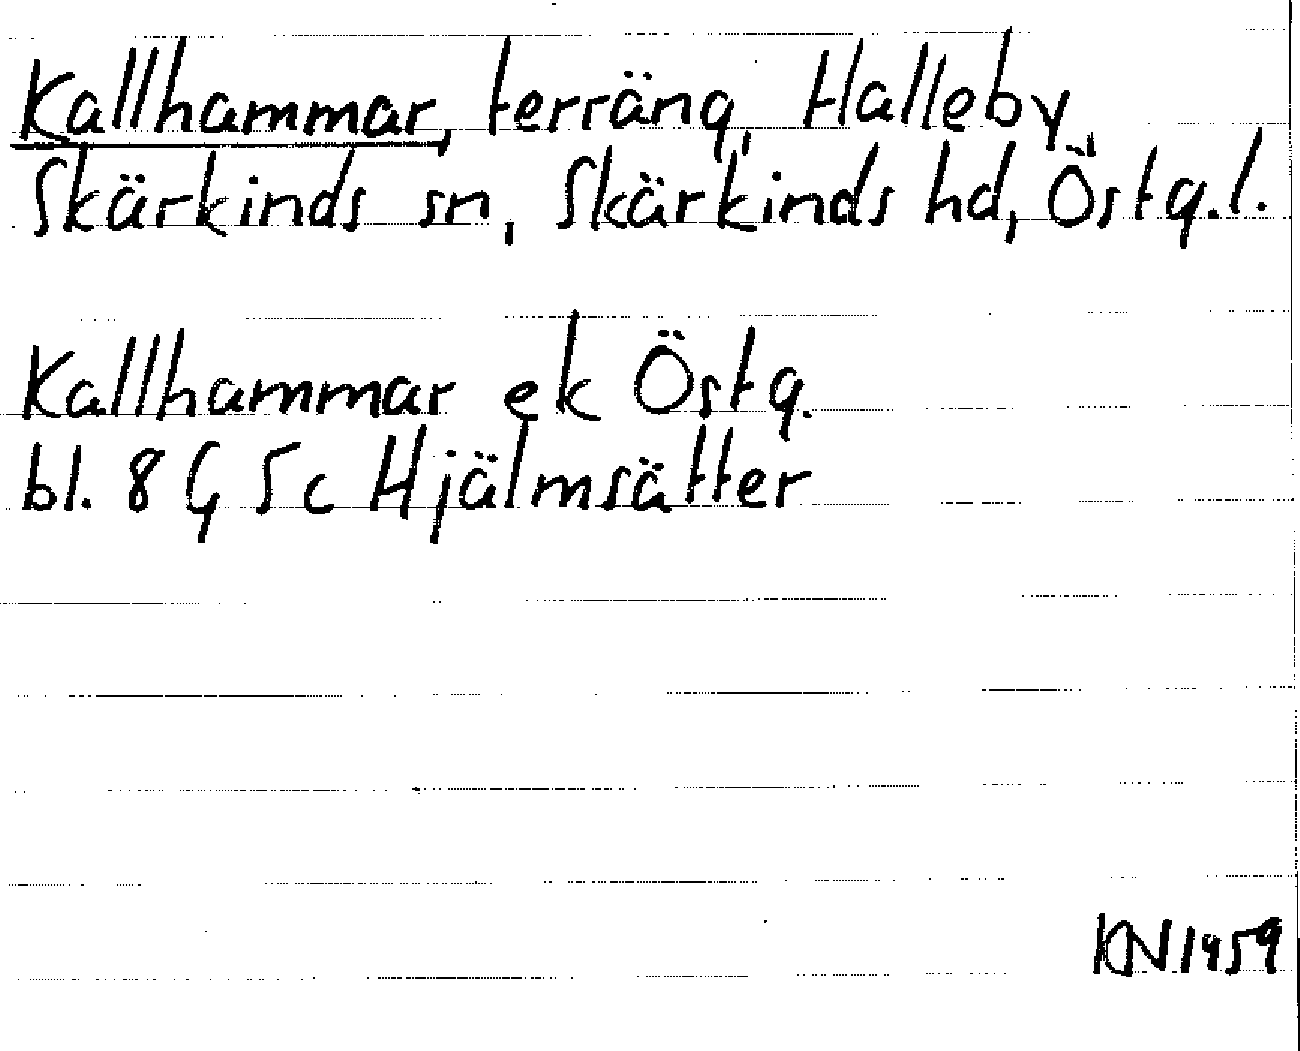 Kallhammar, terräng, Halleby,
Skärkinds sn, Skärkinds hd, Östg.l.
Kallhammar ek Östg.
bl. 8 G 5c Hjälmsätter
KN 1959